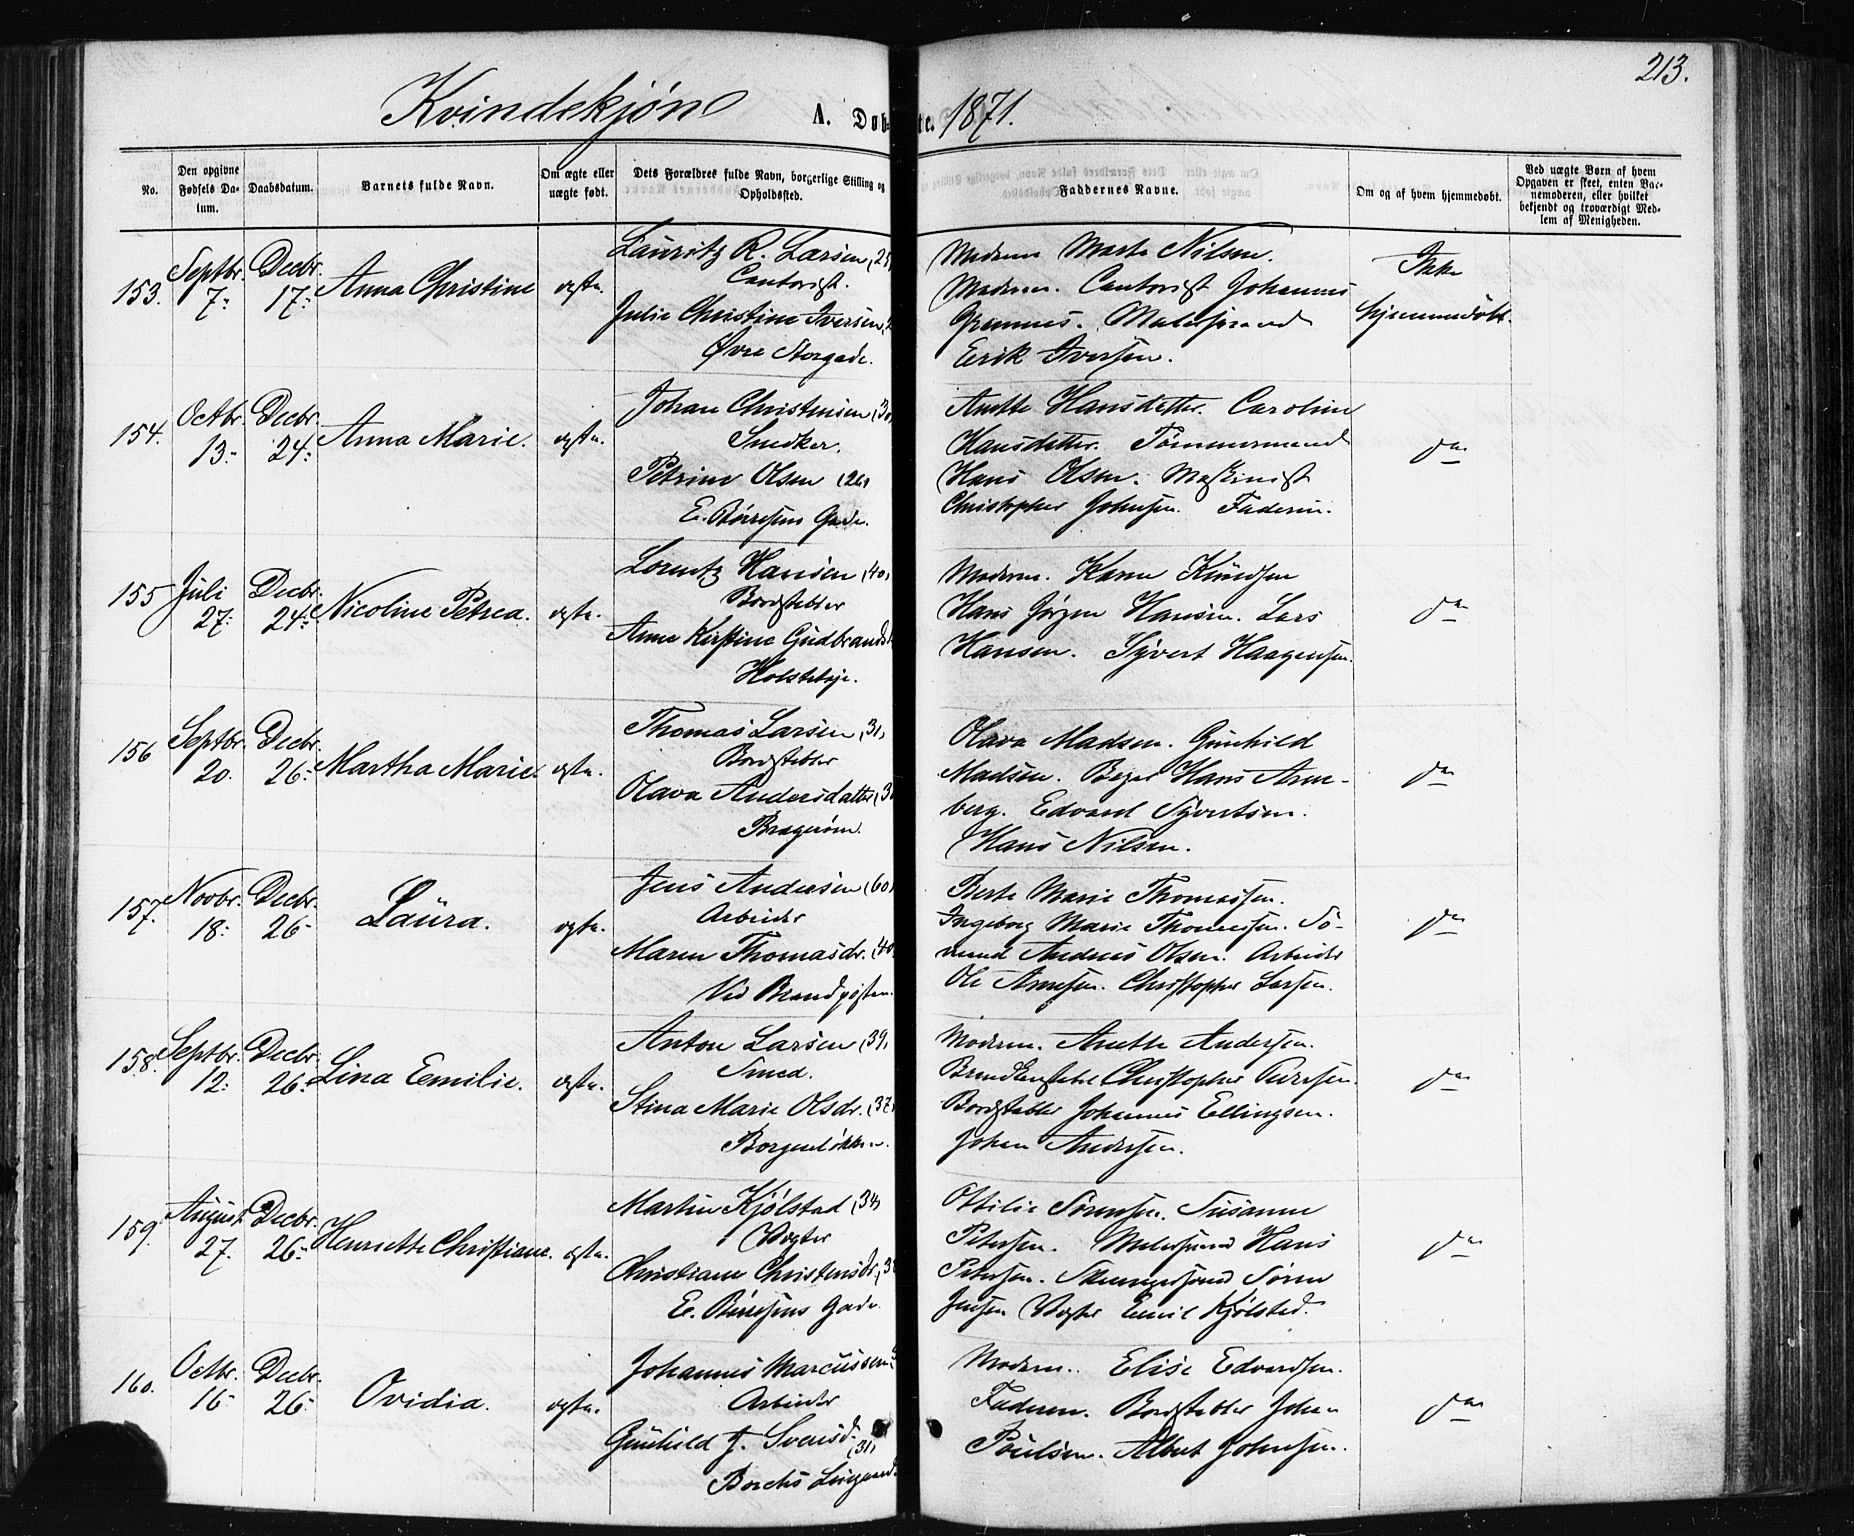 213.
Kvindekjøn A. Døbte. 1871.
No.
Den opgivne Fødsels Datum.
Daabsdatum.
Barnets fulde Navn.
Om ægte eller uægte født.
Dets Forældres fulde Navn, borgerlige Stilling og Opholdssted.
Faddernes Navne.
Om og af hvem hjemmedøbt.
Ved uægte Børn af hvem Opgaven er skeet, enten Barnemoderen, eller hvilket bekjendt og troværdigt Medlem af Menigheden.
153. Septbr. 7. Decbr. 17. Anna Christine ægte.
Lauritz R. Larsen
Cantorist.
Julie Christine Iversen
Øvre Storgade.
Marthe Nilsen.
Moderen. Cantorist Johannes
Malersvend
Erik Iversen.
Ikke
hjemmedøbt.
154. Octbr. 13. Decbr. 24. Anna Marie. ægte.
Johan Christensen (30)
Snedker.
Petrine Olsen (26)
E. Børresens Gade.
Anette Hansdatter. Caroline
Hansdatter. Tømmermand
Hans Olsen. Maskinist
Christopher Johnsen. Faderen.
do
155 Juli 27. Decbr. 24. Nicoline Petrea. ægte.
Lorentz Hansen (40)
Bordstabler
Anne Kirstine Gudbrands
Moderen. Karen Knudsen
Hans Jørgen Hansen. Lars
Hansen. Syvert Haagensen.
do
156 Septbr. 20. Decbr. 26. Martha Marie. ægte.
Thomas Larsen (31)
Bordstabler
Olava Andersdatter
Bragerøen.
Olava Madsen. Gunhild
Madsen. Bager Hans Arne-
berg. Edvard Syvertsen.
Hans Nilsen.
do
157. Novbr. 18. Decbr. 26. Laura. ægte.
Jens Andersen (60)
Arbeider
Maren Thomasdr. (40)
Ved Brandposten.
Berte Marie Thomassen.
Ingeborg Marie Thomassen. Sø-
mand Andreas Olsen. Arbeider
Ole Arnesen. Christopher Larsen.
do
158. Septbr. 12. Decbr. 26. Lina Emilie. ægte.
Anton Larsen (39)
Smed.
Stina Marie Olsdr. (37)
Borgenløkken.
Moderen. Anette Andersen.
Brandkonstabel Christopher
Bordstabler Johannes Ellingsen.
Johan Andersen.
do
159. August 27. Decbr. 26. Henriette Christiane. ægte.
Martin Kjølstad (34)
Vægter
Christiane Christensdr.
E. Børresens Gade.
Ottilie Sørensen. Susanne
Petersen. Malersvend Hans
Petersen. Søren
Jensen Vægter Emil Kjølstad.
do
160. Octbr. 16 Decbr. 26. Ovidia. ægte.
Johannes Marcussen
Arbeider
Gunhild J. Svensd. (31)
Borchs
Moderen. Elise Edvardsen.
Faderen. Bordstabler Johan
Poulsen. Albert Johnsen.
do